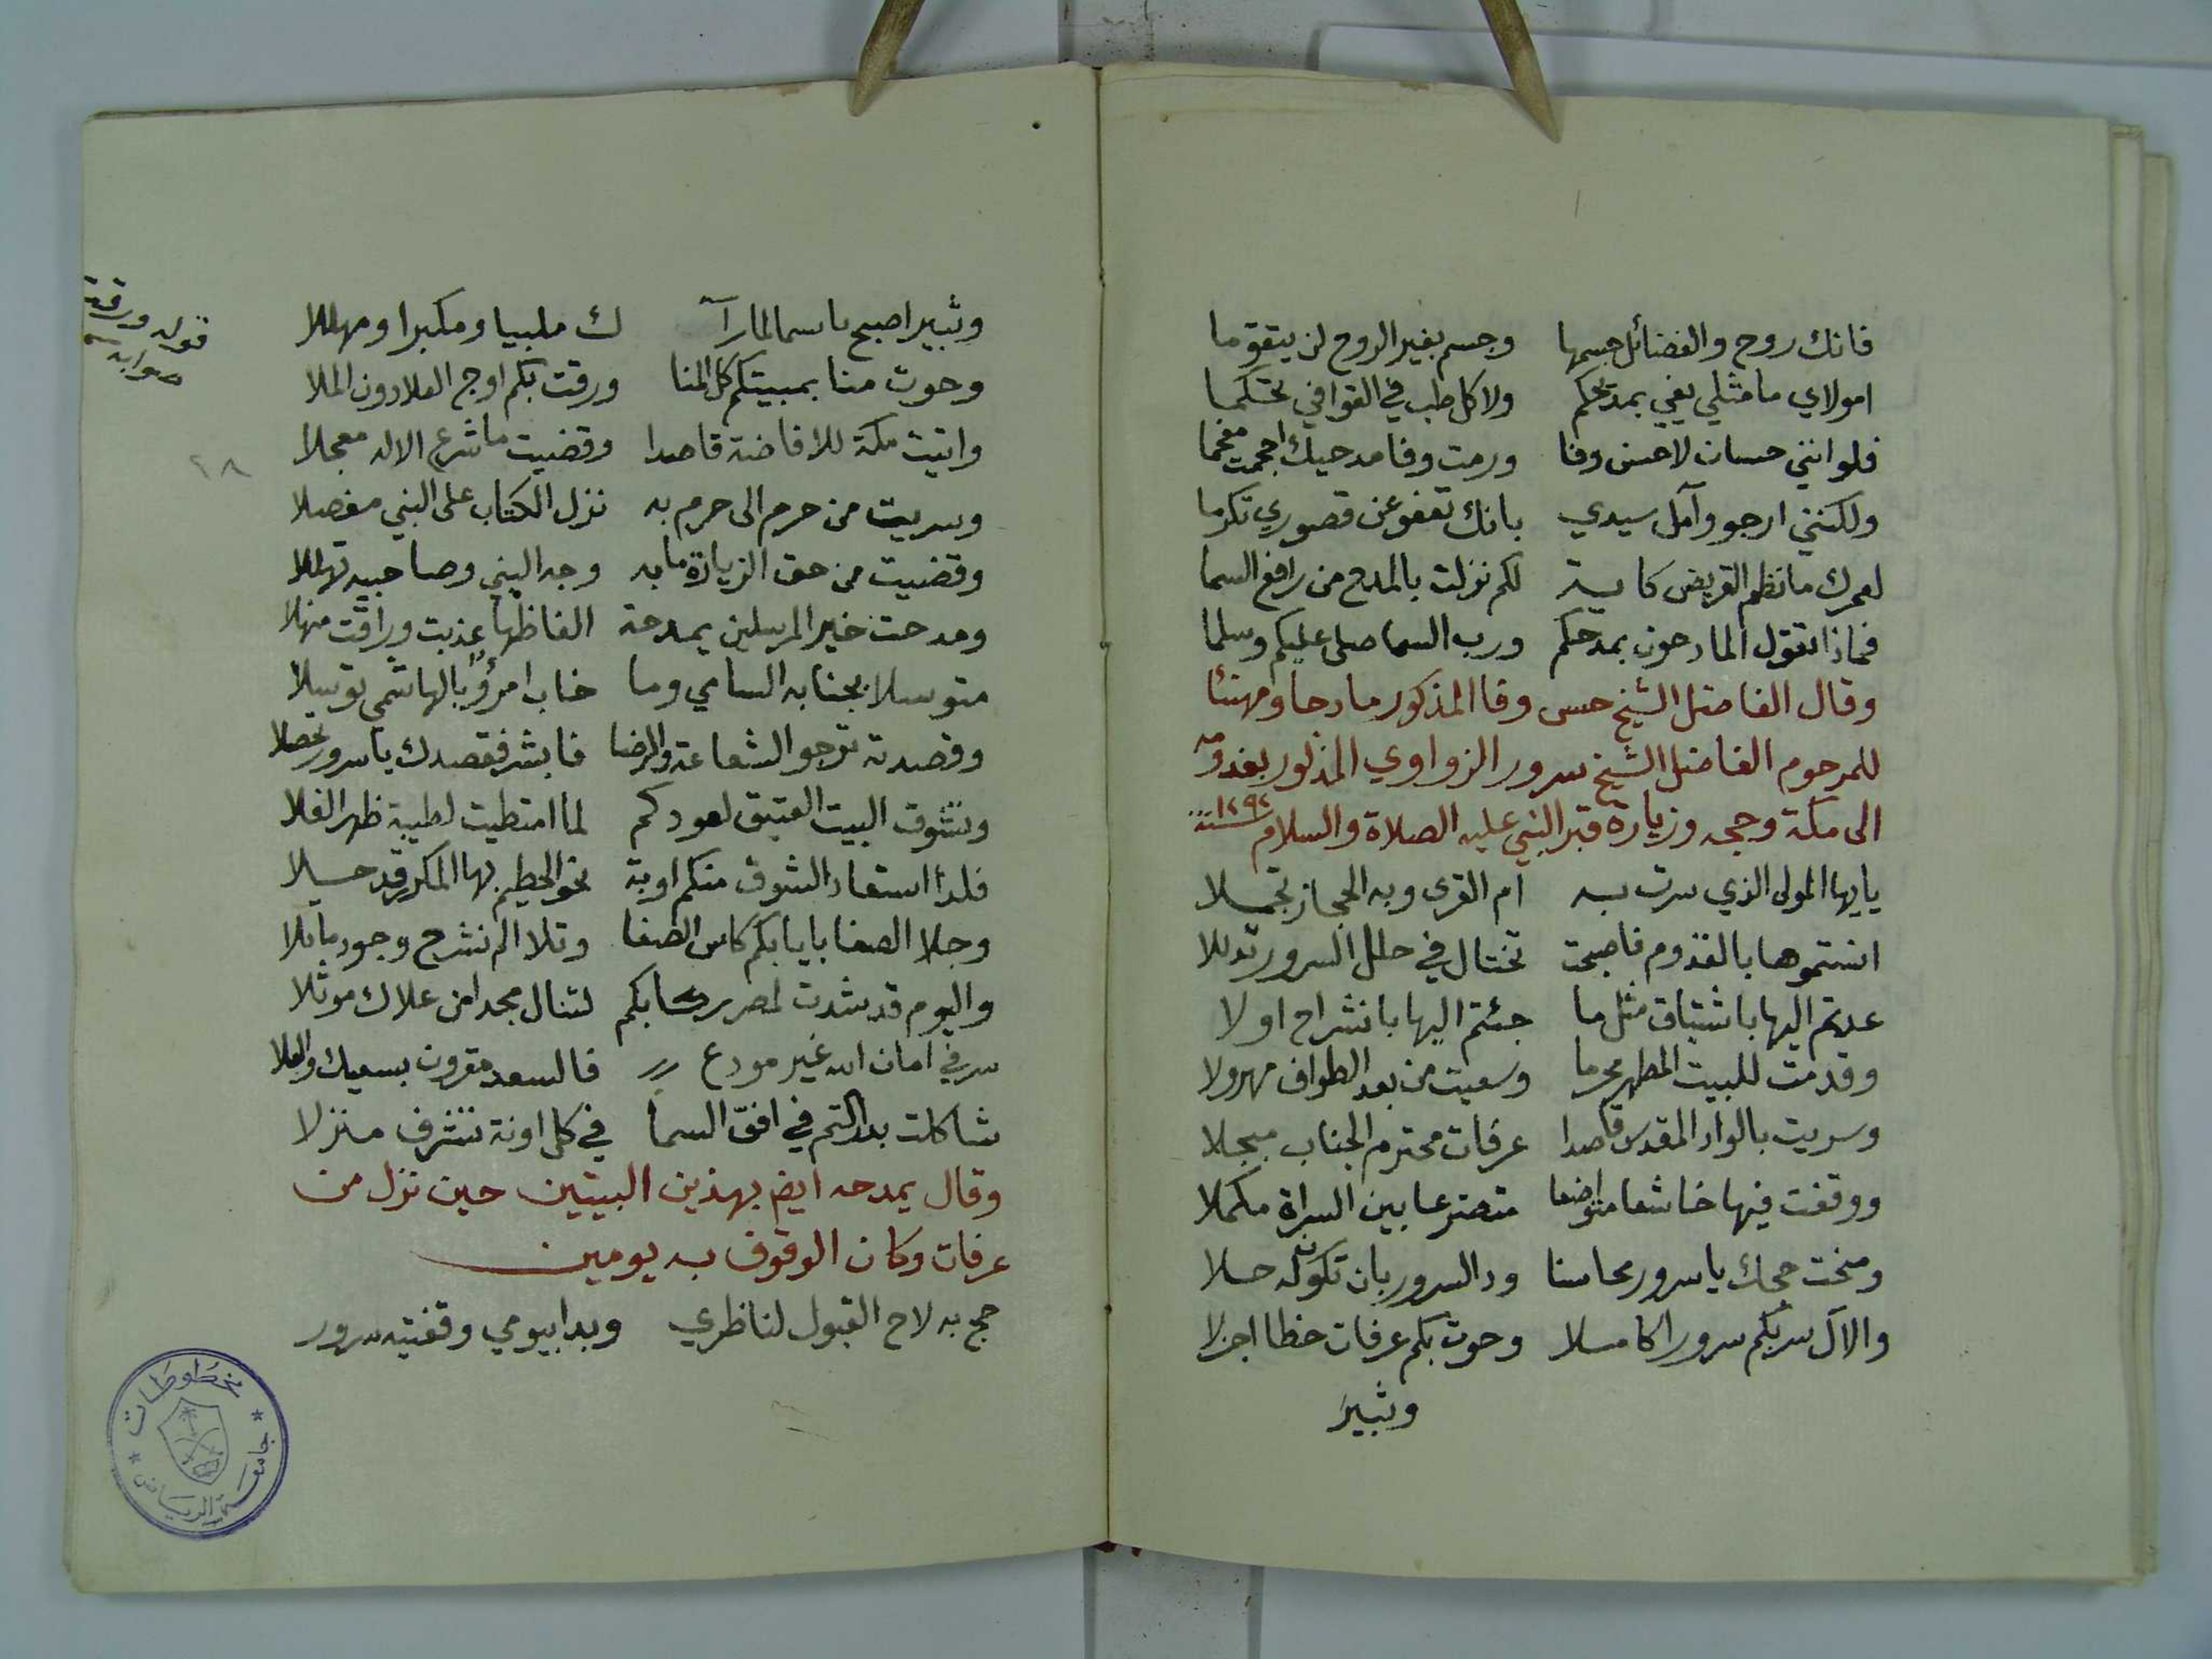 فانك روح والفضائل جسمها وجسم بغير الروح لن يتقوما
امولاي ما مثلي يفي بمديحكم ولا كل طب في القوافي تحكما
فلو انني حسان لاحسن وفا ورمت وفا مدحيك احجمت مفخما
ولكنني ارجو وآمل سيدي بانك تعفو عن قصوري تكرما
لعمرك ما نظم القريض كاية لكم نزلت بالمدح من رافع السما
فماذا تقول المادحون بمدحكم ورب السما صلى عليكم وسلما
وقال الفاضل الشيخ حسن وفا المذكور مادحا ومهنئا
للمرحوم الفاضل الشيخ سرور الزواوي المذكور بقدومه
الى مكة وحجه وزيارة قبر النبي عليه الصلاة والسلام سنة ١٢٩٢
يايها المولى الذي سرت به ام القرى وبه الحجاز تجملا
انستموها بالقدوم فاصبحت تختال في حلل السرور تدللا
عدتم اليها باشتياق مثل ما جئتم اليها بانشراح اولا
وقدمت للبيت المطهر محرما وسعيت من بعد الطواف مهرولا
وسريت بالواد المقدس قاصدا عرفات محترم الجناب مبجلا
ووقفت فيها خاشعا متواضعا متضرعا بين السراة مكملا
ومنحت حجك يا سرور محاسنا ود السرور بان تكون له حلا
والآل سر بكم سرورا كاملا وحوت بكم عرفات حظا اجزلا
وثبير
وثبير اصبح باسما لما رآ ك ملبيا ومكبرا ومهللا
وحوت منا بمبيتكم كل المنا ورقت بكم اوج العلا دون الملا
واتيت مكة للافاضة قاصدا وقضيت ما شرع الاله معجلا
وسريت من حرم الى حرم به نزل الكتاب على النبي مفصلا
وقضيت من حق الزيارة ما به وجه النبي وصاحبيه تهللا
ومدحت خير المرسلين بمدحة الفاظها عذبت وراقت منهلا
متوسلا بجنابه السامي وما خاب امرؤ بالهاشمي توسلا
وقصدته ترجو الشفاعة والرضا فابشر فقصدك يا سرور تحصلا
وتشوق البيت العتيق لعودكم لما امتطيت لطيبة ظهر الفلا
فلذا استعاد الشوق منكم اوبة نحو الحطيم بها المكرر قد حلا
وجلا الصفا بايابكم كاس الصفا وتلا الم نشرح وجود ما تلا
واليوم قد شدت لمصر ركابكم لتنال مجدا من علاك موثلا
سر في امان الله غير مودع فالسعد مقرون بسعيك والعلا
شاكلت بدر التم في افق السما في كل اونة تشرف منزلا
وقال يمدحه ايض بهذين البيتين حين نزل من
عرفات وكان الوقوف به يومين
حج به لاح القبول لناظري وبدا بيومي وقفتيه سرور
قوله ورقت
صوابه
٢٨
مخطوطات
جامعة الرياض